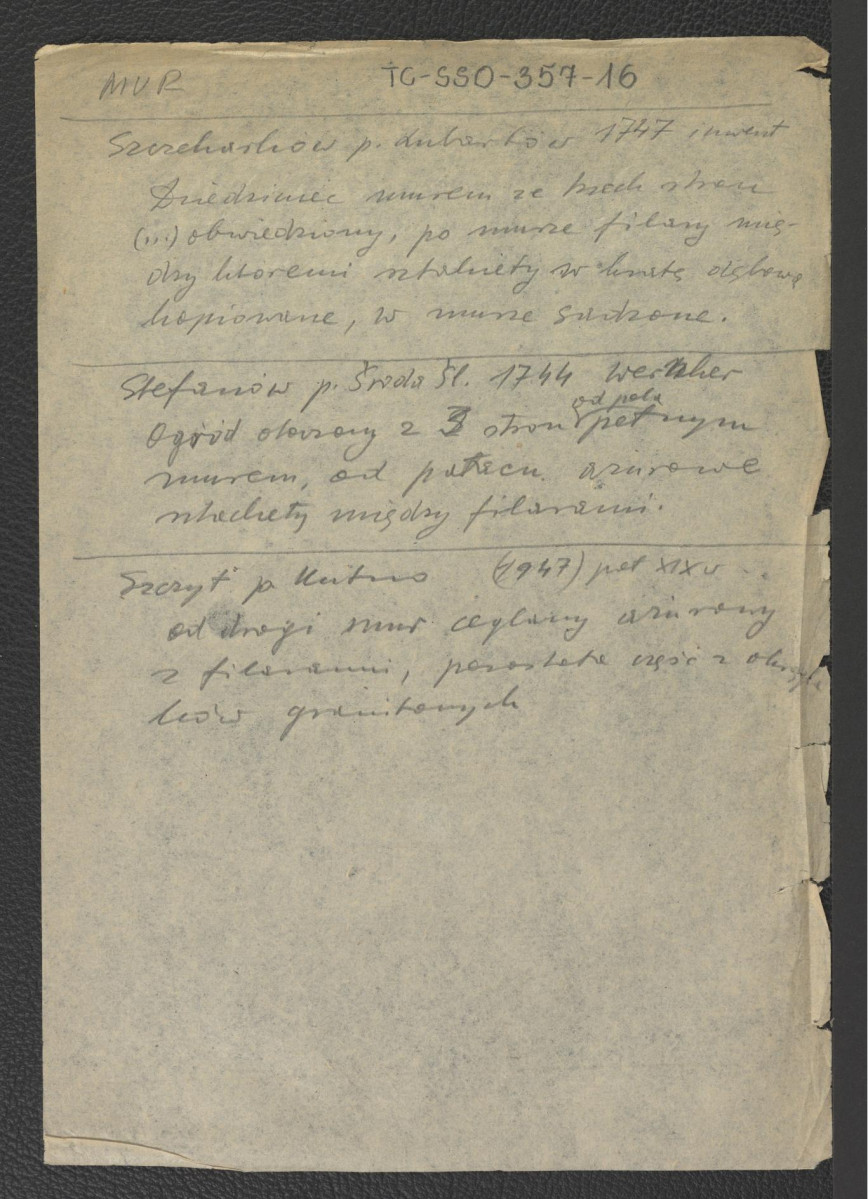 MUR TG-SSO-357-16
Szczekarków p. Lubartów 1747 inwent
Dziedziniec murem ze trzech stron
(...) obwiedziony, po murze filary mię-
dzy ktoremi sztakiety w kratę dębową
kopiowane, w murze sadzone.
Stefanów p. Środa Śl. 1744 Wernher
od pola
Ogród otoczony z 3 stron pełnym
murem, od pałacu ażurowe
sztachety między filarami.
Szczyt p Kutno (1947) poł XIX w
od drogi mur ceglany ażurowy
z filarami, pozostała część z okrągla
ków granitowych